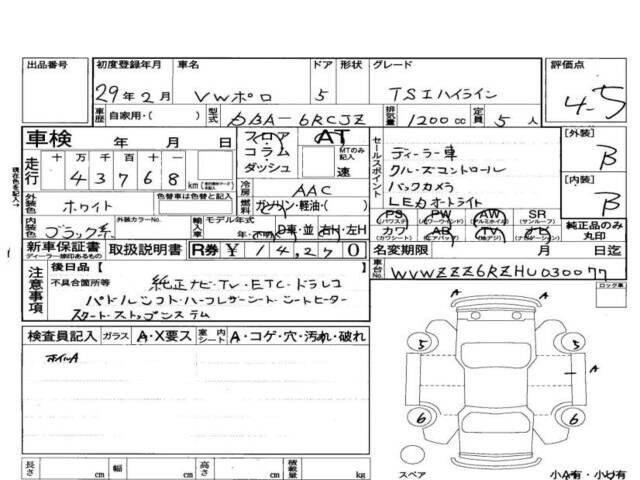 出品番号 初度登録年月 車名 ドア 形状 グレード 評価点
29年2月 VWポロ 5 TSIハイライン 4-5
車歴 自家用・( ) 型式 DBA-6RCJZ 排気量 1200cc 定員 5人
車検 年 月 日 フロア コラム・ダッシュ AT MTのみ記入 速
現在色を記入→
走行 十 万 千 百 十 一 43768 km
冷房 AAC
外装色 ホワイト 色替車は色替と記入 燃料 ガソリン・軽油・( )
内装色 ブラック系 外装カラーNo. 輸入車 モデル年式 年・不明 D車・並 右H・左H
セールスポイント
ディーラー車
クルーズコントロール
バックカメラ
LEDオートライト
[外装] B
[内装] B
PS PW AW SR 純正品のみ丸印
(パワステ) (パワーウインド) (アルミホイル) (サンルーフ)
カワ AB TV ナビ
(カワシート) (エアバック) (地デジ)
新車保証書 ディーラー捺印あるもの 取扱説明書 R券 ¥14,270 名変期限 月 日迄
注意事項 後日品[ ] 車台No. WVWZZZ6RZHU030077
不具合箇所等 純正ナビ・TV・ETC・ドラレコ
パドルシフト・ハーフレザーシート・シートヒーター
スタート・ストップシステム
ロック車
検査員記入 ガラス A・X要ス 室内シート A・コゲ・穴・汚れ・破れ
ホイルA
A
5 5
A
6 6
スペア 小A有・小U有
長さ cm 幅 cm 高さ cm 積載量 kg